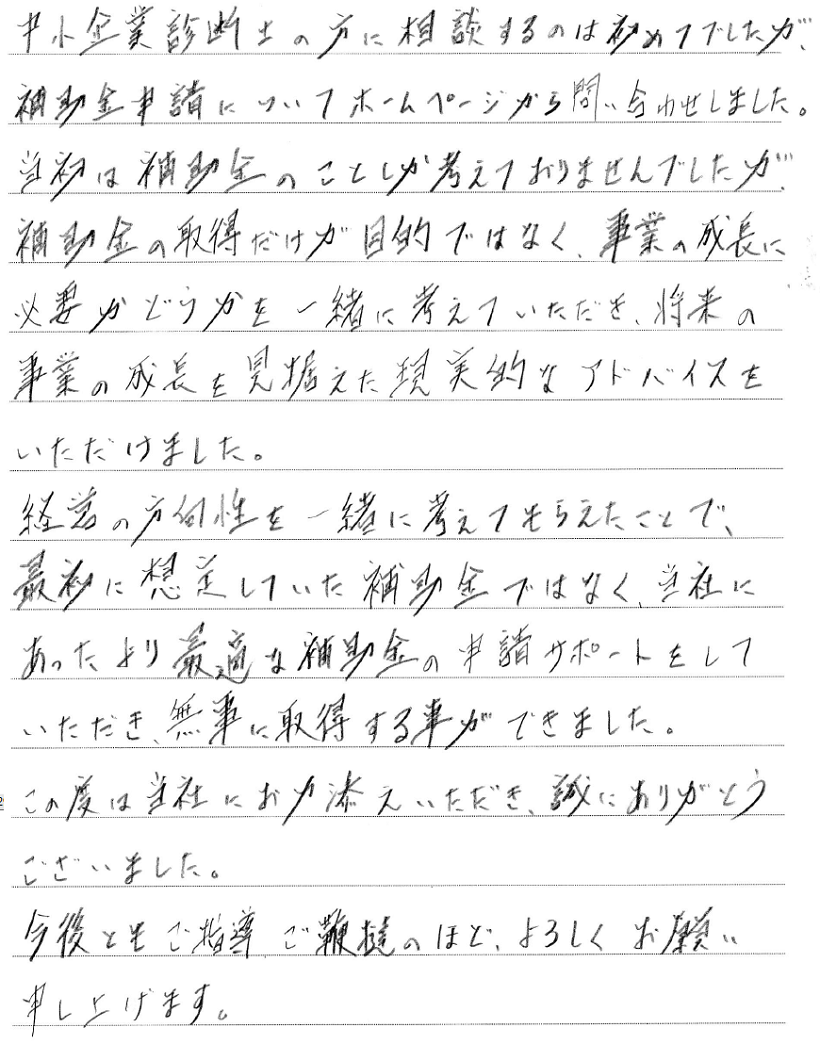 中小企業診断士の方に相談するのは初めてでしたが、
補助金申請についてホームページから問い合わせしました。
当初は補助金のことしか考えておりませんでしたが、
補助金の取得だけが目的ではなく、事業の成長に
必要かどうかを一緒に考えていただき、将来の
事業の成長を見据えた現実的なアドバイスを
いただけました。
経営の方向性を一緒に考えてもらえたことで、
最初に想定していた補助金ではなく、当社に
あったより最適な補助金の申請サポートをして
いただき、無事に取得する事ができました。
この度は当社にお力添えいただき、誠にありがとう
ございました。
今後ともご指導ご鞭撻のほど、よろしくお願い
申し上げます。